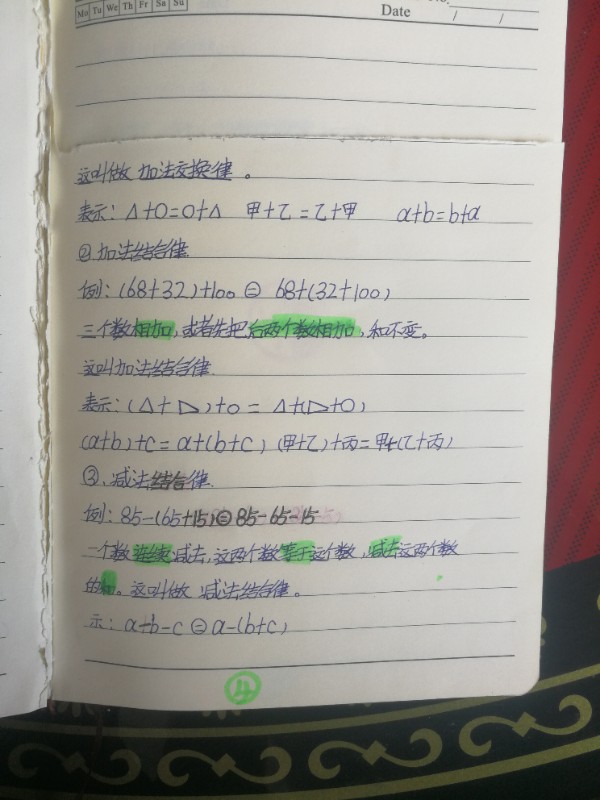 Mo Tu We Th Fr Sa Su
Date / /
这叫做 加法交换律。
表示：△+O=O+△ 甲+乙=乙+甲 a+b=b+a
② 加法结合律
例：(68+32)+100 = 68+(32+100)
三个数相加，或者先把后两个数相加，和不变。
这叫加法结合律.
表示：(△+▷)+o = △+(▷+O)
(a+b)+c=a+(b+c) (甲+乙)+丙=甲+(乙+丙)
③.减法结合律.
例：85-(65+15)=85-65-15
一个数连续减去，这两个数等于这个数，减去这两个数
的和。这叫做 减法结合律。
示：a+b-c = a-(b+c)
④